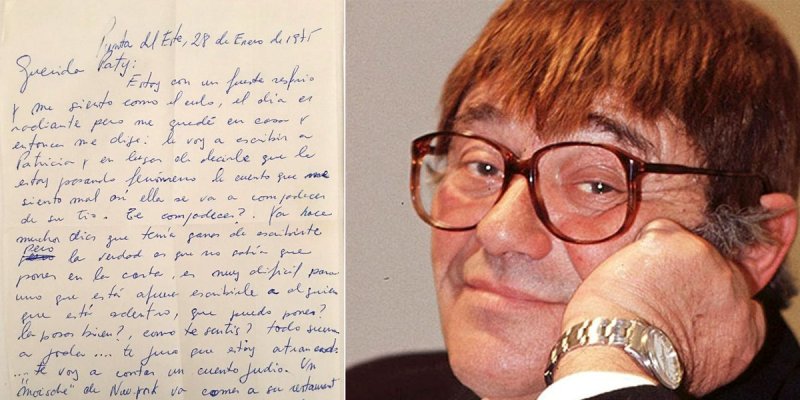 Punta del Este, 28 de Enero de 1975
Querida Paty:
Estoy con un fuerte resfrio
y me siento como el culo, el día es
radiante pero me quedé en casa y
entonces me dije: le voy a escribir a
Patricia y en lugar de decirle que la
estoy pasando fenómeno le cuento que me
siento mal así ella se va a compadecer
de su tío. Te compadeces?. Ya hace
muchos dias que tenía ganas de escribirte
pero la verdad es que no sabía que
poner en la carta, es muy dificil para
uno que está afuera escribirle a alguien
que está adentro, que puedo poner?
la pasas bien?, como te sentis? todo suena
a joda.... te juro que estoy atrancado
....te voy a contar un cuento judio. Un
"moishe" de New-york va comer a su restaurant